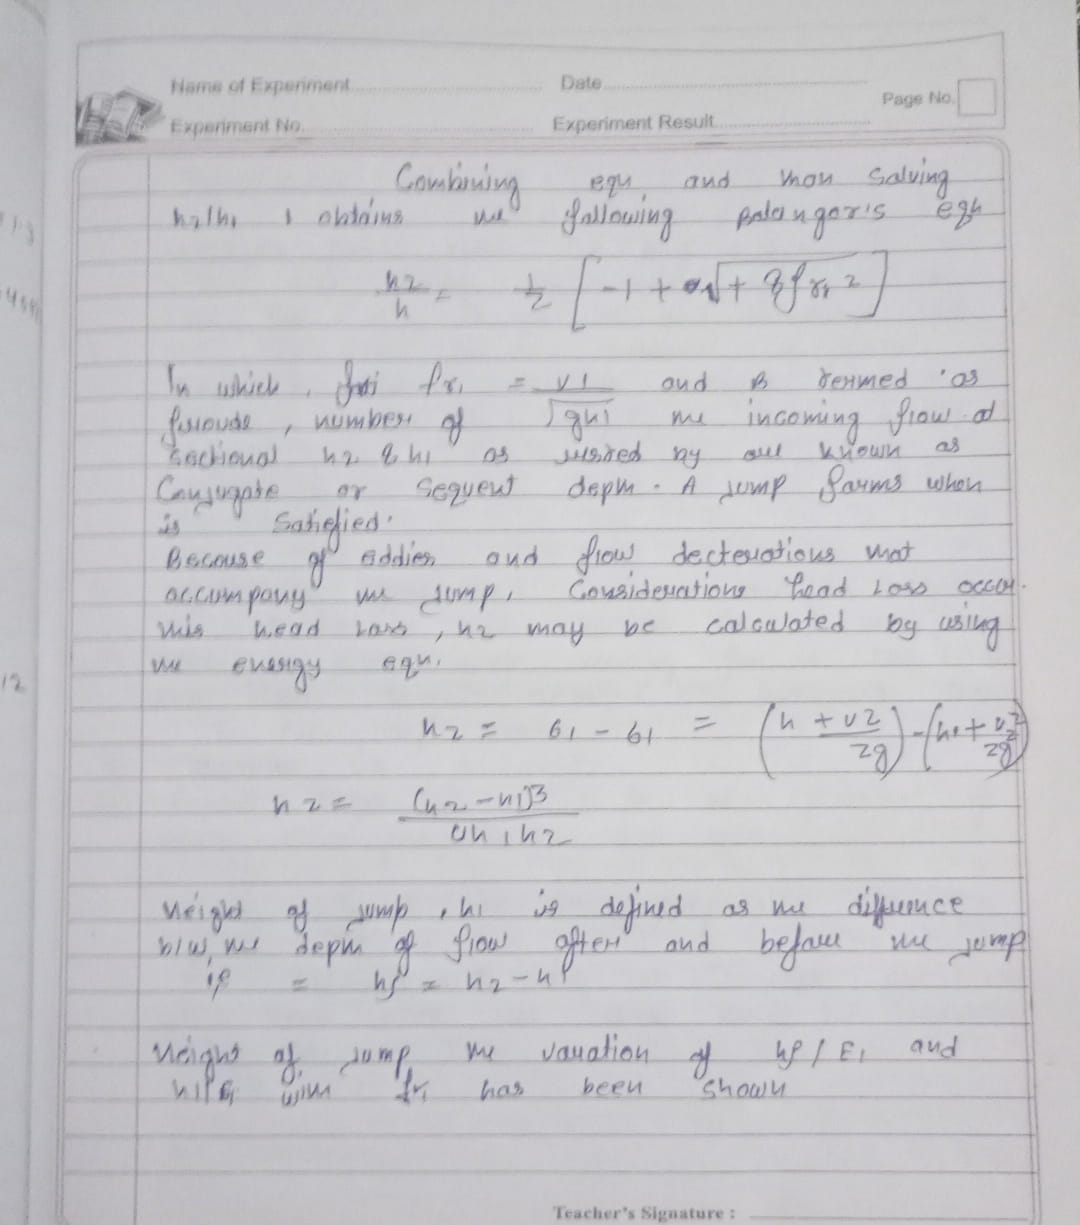 Name of Experiment Date
Page No.
Experiment No. Experiment Result
Combining eqn and then Salving
h2/h1 obtains the fallowing Belangar's eqn
h2/h = 1/2 [-1 + √1 + 8fr1 2]
In which, fr1 = V1/√gh1 and is termed as
froude, number of the incoming flow at
Sectional h2 & h1 as by are known as
Conjugate or Sequent depth. A Jump farms when
is Satisfied.
Because of eddies and flow that
accompany the Jump, Considerations head Loss occur.
this head Loss, h2 may be calculated by using
the energy eqn.
h2 = 61 - 61 = (h + v2/2g) - (h2 + v2 2/2g)
h2 = (h2 - h1)3/4h1h2
Height of jump, h1 is defined as the difference
b/w, the depth of flow after and before the jump
ie = hj = h2 - h1
Height of jump the variation of hj / E1 and
with fr1 has been shown
Teacher's Signature :